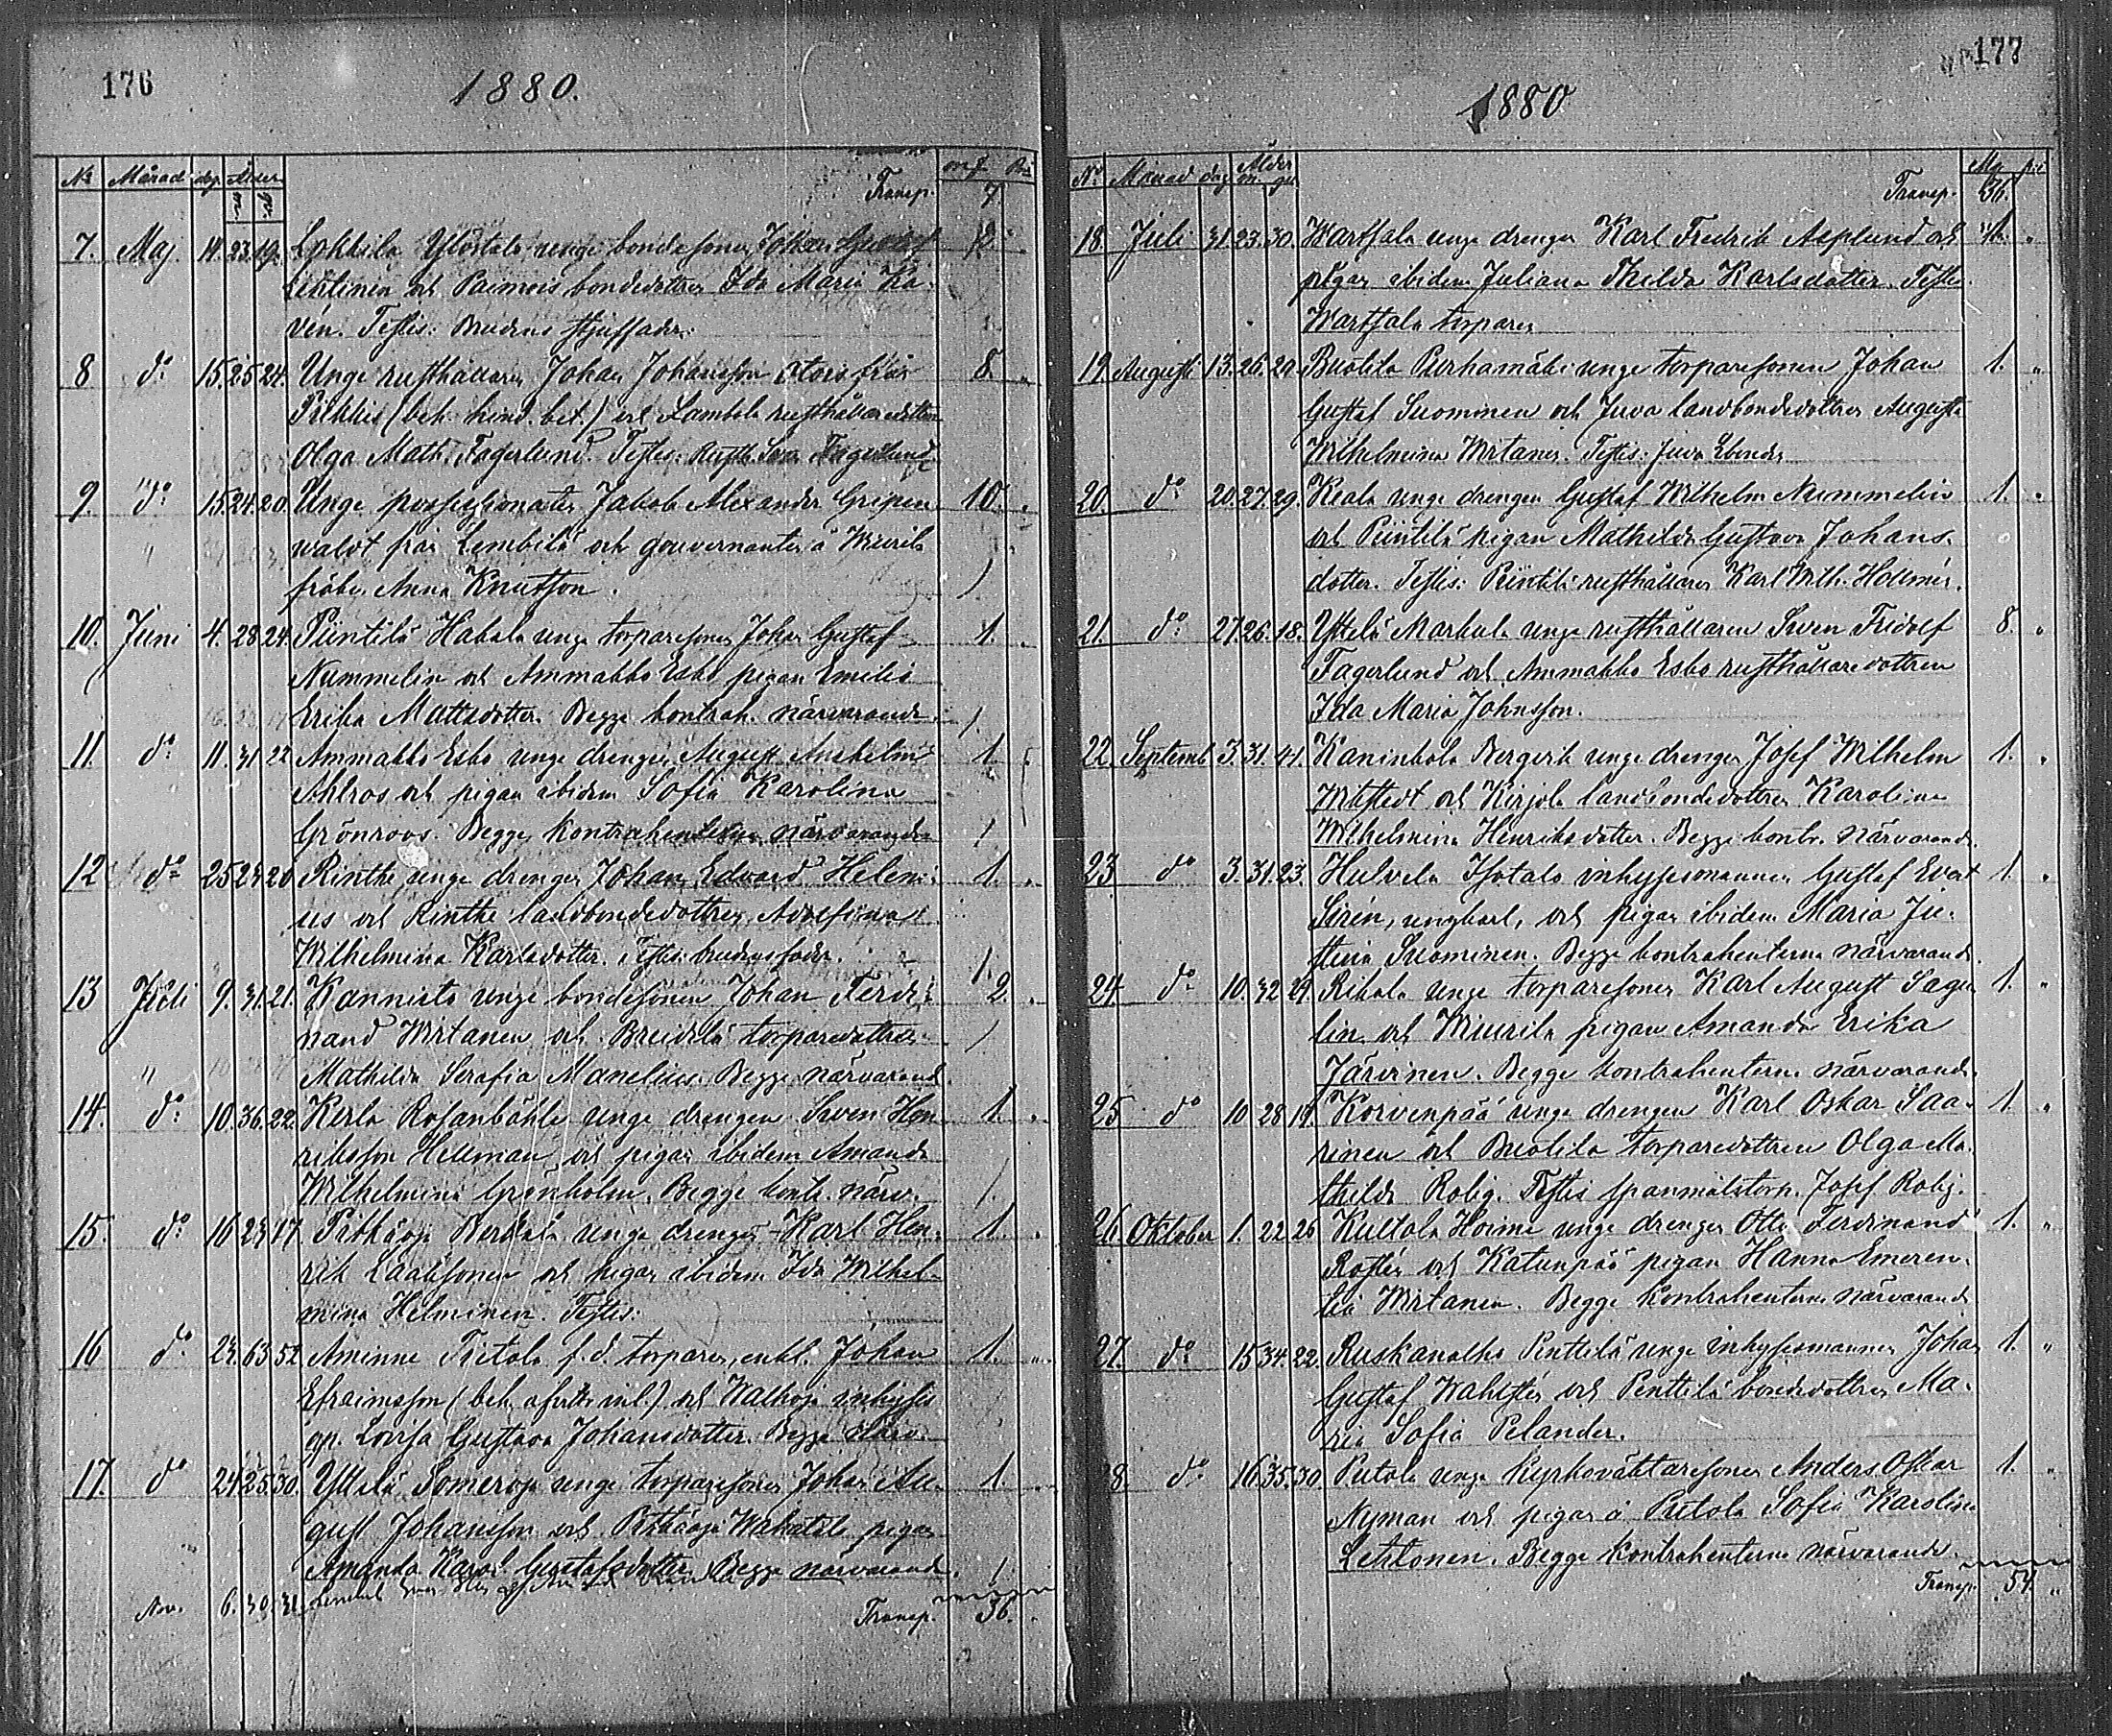 176
1880.
No Månad dag Ålder mf. Pi
Transp. 7
7. Maj. 14. 23. 19. Lokkila Ylöstalo unge bondesonen Johan Gustaf 12.
Lehtinen och Paimois bondedottren Ida Maria Ka-
vén. Testis: Brudens styffader.
8 do 15. 25 24. Unge rusthållaren Johan Johansson från 8. "
Pikkis (bek. hind. bet.) och Lambola rusthållaredottren
Olga Math. Fagerlund. Testis: Rusth. Sven Fagerlund
9. do 15. 24. 20. Unge possessionaten Jakob Alexander Gripen- 10. "
waldt från Lembilä och gouvernanten å Wiurila
fröken Anna Knutsson.
10. Juni 4. 28 24. Piintilä Hakala unge torparesonen Johan Gustaf 1. "
Nummelin och Ammakko Esbo pigan Emilia
Erika Mattsdotter. Begge kontrah. närvarande.
11. do 11. 31 22 Ammakko Esbo unge drengen August Anshelm 1.
Ahlros och pigan ibidem Sofia Karolina
Grönroos. Begge kontrahenterna närvarande
12 do 25 24 20 Rinthe unge drengen Johan Edvard Heleni- 1. "
us och Rinthe landbondedottren Adolfiina
Wilhelmina Karlsdotter. Testis: brudens fader.
13 Juli 9. 31. 21. Kannisto unge bondesonen Johan Ferdi- 2. "
nand Wirtanen och Breidilä torparedottren
Mathilda Serafia Manelius. Begge närvarand.
14. do 10. 36. 22. Kerla Rosanbäkk unge drengen Sven Hen- 1. "
riksson Hellman och pigan ibidem Amanda
Wilhelmina Grönholm. Begge kontr. närv.
15. do 16 24 17. Pitkäoja unge drengen Karl Hen- 1. "
rik Laaksonen och pigan ibidem Ida Wilhel-
mina Helminen. Testis:
16 do 24. 63 52 Aminne Tiitola f. d. torparen, enkl. Johan 1. "
Efraimsson (bek. afvittr. inl.) och Walkoja inhyses
qp. Lovisa Gustava Johansdotter. Begge närv.
17. do 24. 25. 30. Yttelä Someroja unge torparesonen Johan Au- 1. "
gust Johansson och Pitkäoja pigan
Amanda Karol. Gustafsdotter. Begge närvarand.
Nov. 6. 30. 31
Transp. 36.
177
1880
No Månad dag Ålder m. qu Mk pi
Transp. 36.
18. Juli 31. 23. 30. Wartsala unge drengen Karl Fredrik Asplund och "
pigan ibidem Juliana Thilda Karlsdotter. Testis
Wartsala torparen
19. Augusti 13. 26. 20. Buotila Purhamäki unge torparesonen Johan 1. "
Gustaf Suominen och Juva landbondedottren Augusta
Wilhelmina Wirtanen. Testis: Juva
20. do 20. 27. 29. Keala unge drengen Gustaf Wilhelm Nummelin 1. "
och Piintilä pigan Mathilda Gustava Johans-
dotter. Testis: Piintilä rusthållaren Karl Wilh. Hollmér.
21. do 27. 26. 18. Yttelä Markula unge rusthållaren Sven Fridolf 8. "
Fagerlund och Ammakko Esbo rusthållaredottren
Ida Maria Johnsson.
22. Septemb 3. 31. 41. Kaninkola Bergvik unge drengen Josef Wilhelm 1. "
Witstedt och Kirjola landbondedottren Karolina
Wilhelmina Henriksdotter. Begge kontr. närvarand.
23 do 3. 31. 23. Hulvela Isotalo inhysesmannen Gustaf Evert 1. "
Sirén, ungkarl, och pigan ibidem Maria Ju-
stina Suominen. Begge kontrahenterna närvarand.
24. do 10. 32 29. Rikala unge torparesonen Karl August Sage- 1. "
lin och Wiurila pigan Amanda Erika
Järvinen. Begge kontrahenterna närvarande.
25 do 10 28 19. Korvenpää unge drengen Karl Oskar Saa- 1. "
rinen och Buotila torparedottren Olga Ma-
thilda Rolig. Testis spanmålstorp. Josef Rolig.
26 Oktober 1. 22 26 Kultola Hoimi unge drengen Otto Ferdinand 1. "
Rostén och Katunpää pigan Hanna Emeren-
tia Wirtanen. Begge kontrahenterna närvarand
27. do 15 34. 22. Ruskanalho Penttilä unge inhysesmannen Johan 1. "
Gustaf Wahlstén och Penttilä bondedottren Ma-
ria Sofia Pelander.
28. do 16. 35. 30. Putola unge kyrkovaktaresonen Anders Oskar 1. "
Nyman och pigan å Putola Sofia Karolina
Lehtonen. Begge kontrahenterna närvarande.
Transp. 54. "